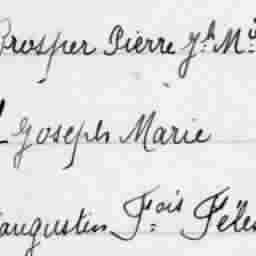 Prosper Pierre Jh M
Joseph Marie
augustin Fois Féles